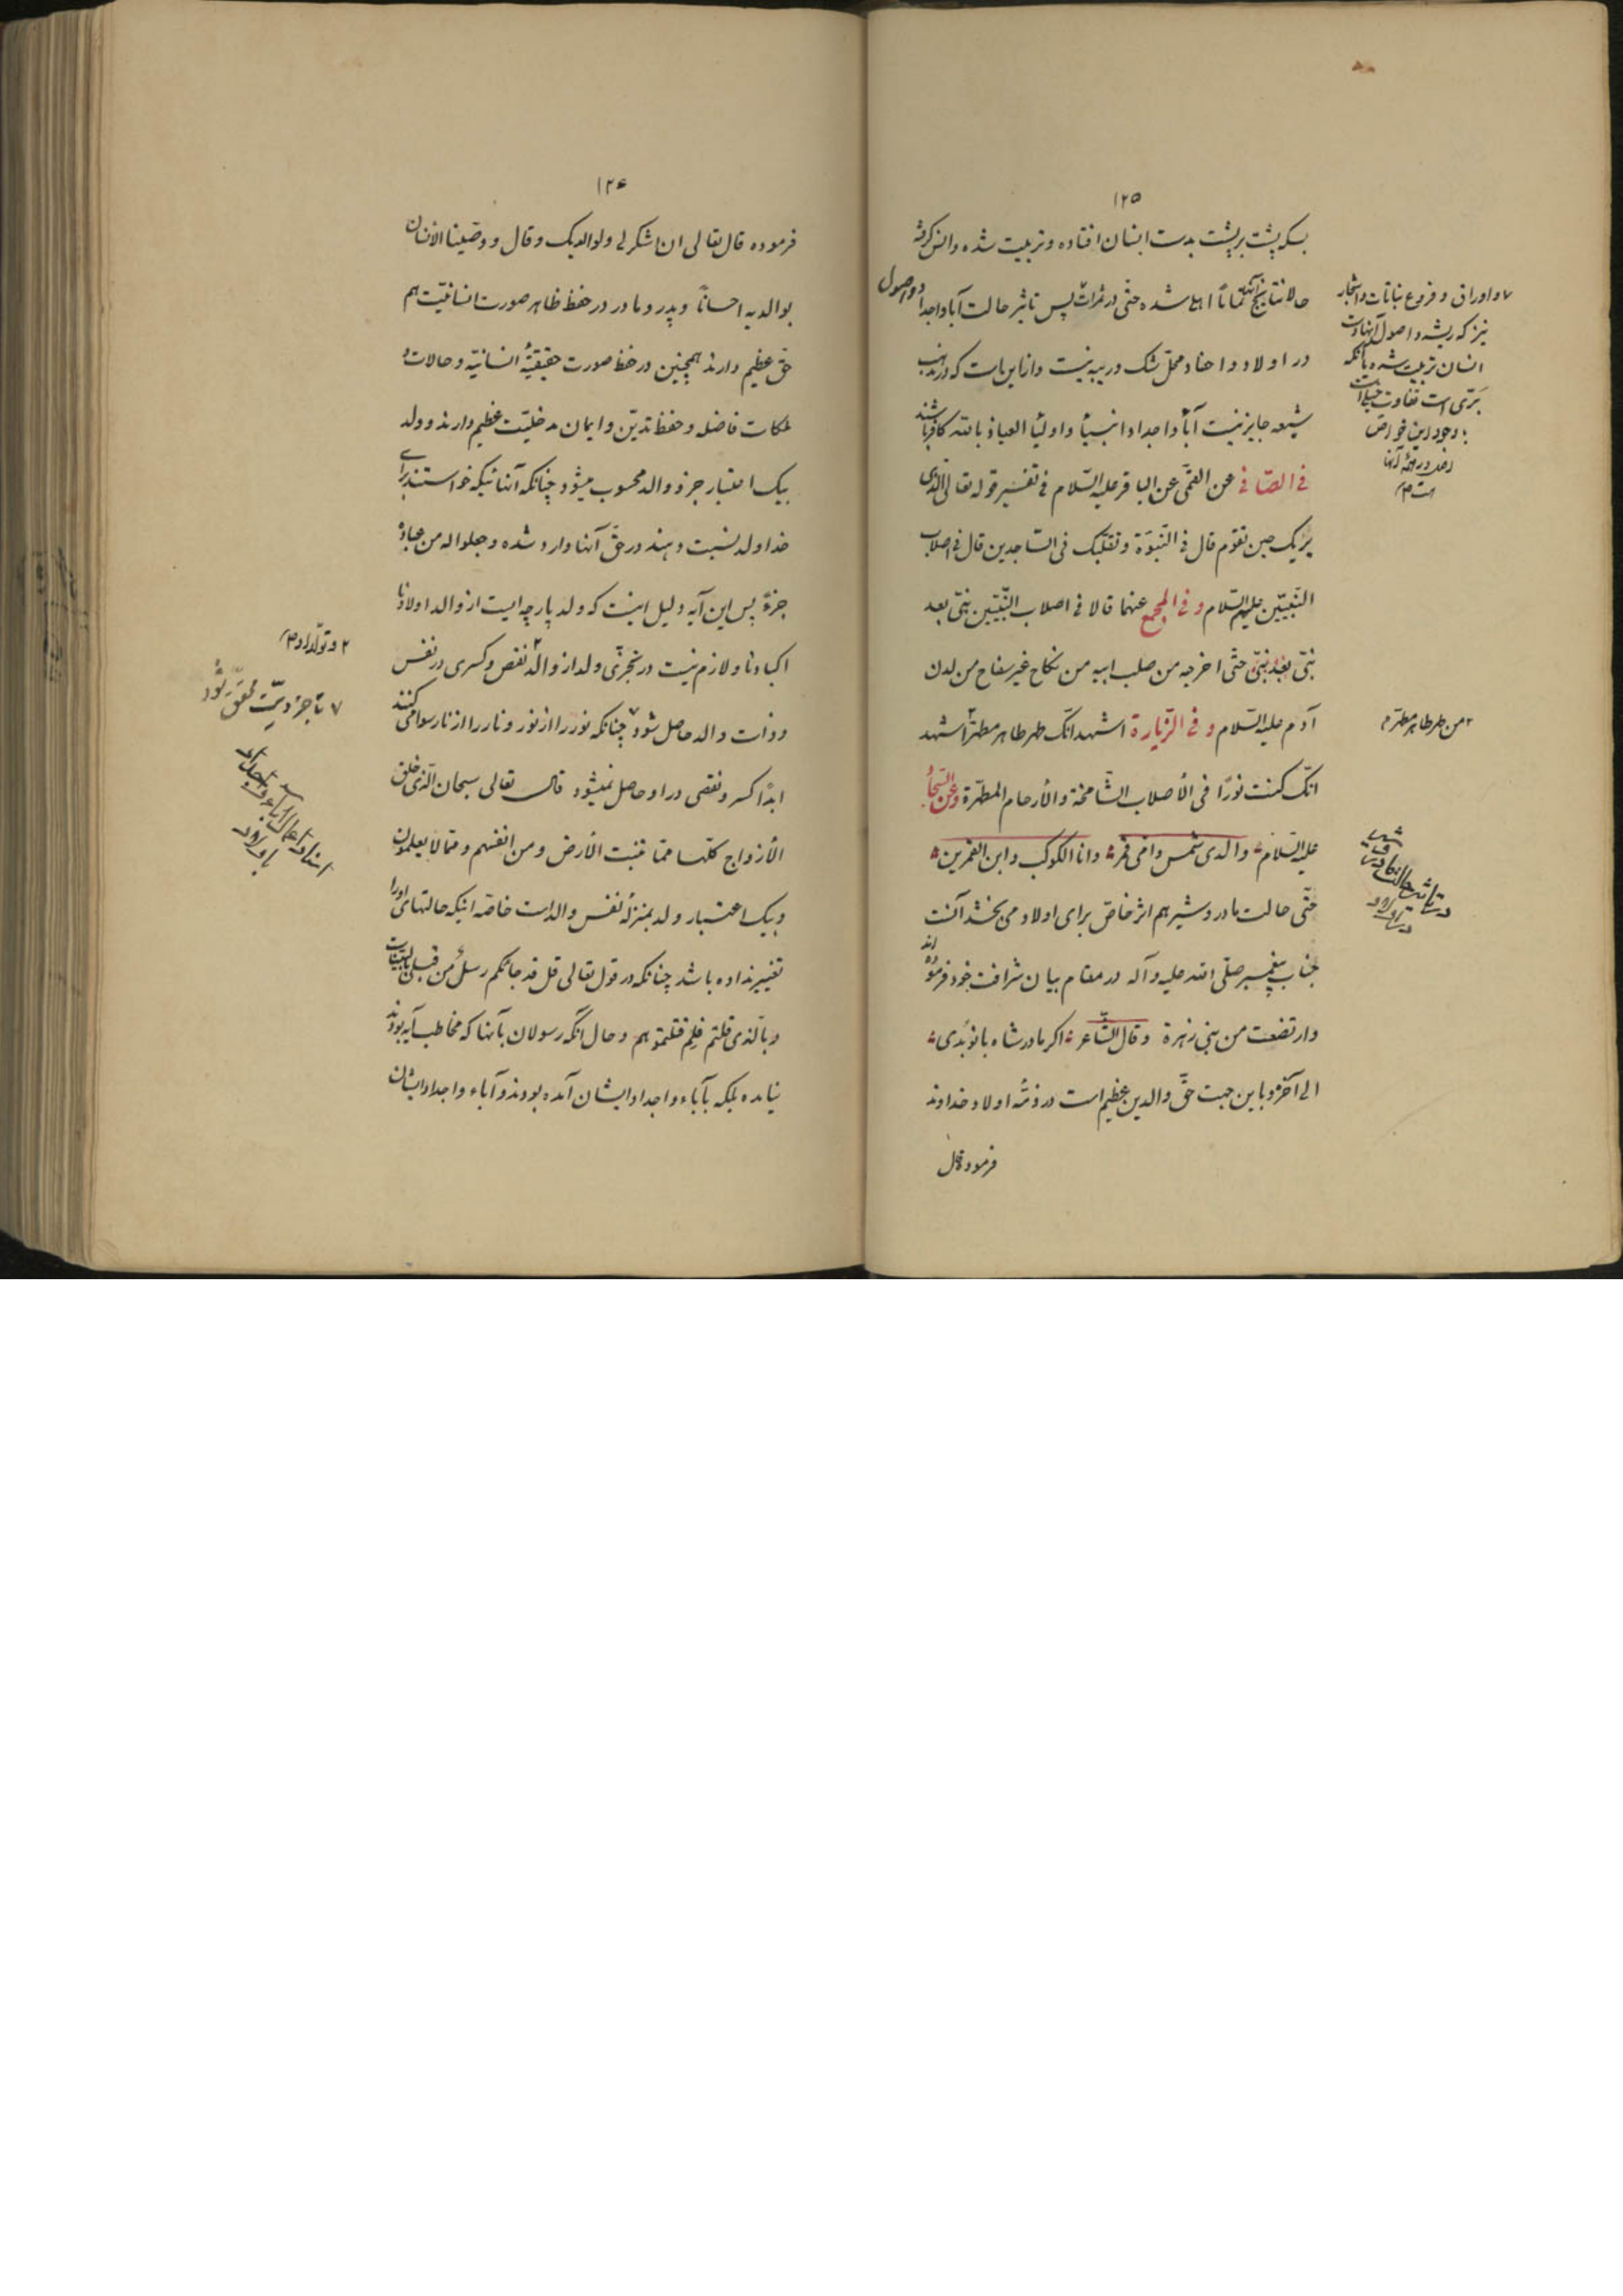 ۱۲۵
بسکه پشت بر پشت بدست انسان افتاده و تربیت شده وانس گرفته
حالا نتایج آنها تماماً اهلی شده حتّی در ثمرات پس تاثیر حالت آبا و اجداد و اصول
در اولاد و احفاد محلّ شک و ریبه نیست و از این بابت که در مذهب
شیعه جایز نیست آبآء و اجداد انبیآء و اولیآء العیاذ بالله کافر باشند
فی الصّافی عن القمّی عن الباقر علیه السّلام فی تفسیر قوله تعالی الّذی
یریک حین تقوم قال فی النّبوّة و تقلّبک فی السّاجدین قال فی اصلاب
النّبیّین علیهم السّلام و فی المجمع عنهما قالا فی اصلاب النّبیّین نبیّ بعد
نبیّ بعد نبیّ حتّی اخرجه من صلب ابیه من نکاح غیر سفاح من لدن
آدم علیه السّلام و فی الزّیارة اشهد انّک طهر طاهر مطهّر ۲ اشهد
انّک کنت نورًا فی الأصلاب الشّامخة و الأرحام المطهّرة و عن السّجّاد
علیه السّلام والدی شمس و امّی قمر و انا الکوکب و ابن القمرین
حتّی حالت مادر و شیر هم اثر خاصّ برای اولاد می بخشد آنست
جناب پیغمبر صلّی الله علیه و آله در مقام بیان شرافت خود فرموده اند
وارتضعت من بنی زهرة و قال الشّاعر اگر مادر شاه بانو بُدی
الی آخره و باین جهت حقّ والدین عظیم است در ذمّهٔ اولاد خداوند
فرموده قال
۷ و اوراق و فروع نباتات و اشجار
نیز که ریشه و اصول آنها بدست
انسان تربیت شده با آنکه
بَرّی است تفاوت
۲ من طهر طاهر مطهّر م
۱۲۶
فرموده قال تعالی ان اشکر لی ولوالدیک و قال و وصّینا الانسان
بوالدیه احساناً و پدر و مادر در حفظ ظاهر صورت انسانیّت هم
حقّ عظیم دارند همچنین در حفظ صورت حقیقیّهٔ انسانیّه و حالات و
ملکات فاضله و حفظ تدیّن و ایمان مدخلیّت عظیم دارند و ولد
بیک اعتبار جزو والد محسوب میشود چنانکه آنانیکه خواستند برای
خدا ولد نسبت دهند در حقّ آنها وارد شده و جعلوا له من عباده
جزءً پس این آیه دلیل اینست که ولد پارچه ایست از والد اولادنا
اکبادنا و لازم نیست در تجزّی ولد از والد ۲ نقص و کسری در نفس
و ذات والد حاصل شود ۷ چنانکه نور را از نور و نار را از نار سوا می کنند
ابدًا کسر و نقصی در او حاصل نمیشود قال تعالی سبحان الّذی خلق
الأزواج کلّها ممّا تنبت الأرض و من انفسهم و ممّا لا یعلمون
و بیک اعتبار ولد بمنزلهٔ نفس والد است خاصّه اینکه حالتهای او را
تغییر نداده باشد چنانکه در قول تعالی قل قد جائکم رسلٌ من قبلی بالبیّنات
و بالّذی قلتم فلِم قتلتموهم و حال آنکه رسولان بآنها که مخاطب آیه بودند
نیامده بلکه بآباء و اجداد ایشان آمده بودند و آباء و اجداد ایشان
۲ و تولّد او م
۷ تا جزویّت محقّق شود